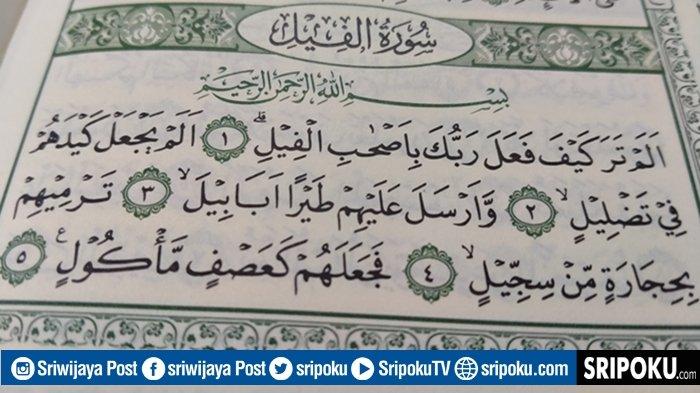 سُوْرَةُ الْفِيْلِ
بِسْمِ اللهِ الرَّحْمٰنِ الرَّحِيْمِ
اَلَمْ تَرَ كَيْفَ فَعَلَ رَبُّكَ بِاَصْحٰبِ الْفِيْلِۗ ١ اَلَمْ يَجْعَلْ كَيْدَهُمْ
فِيْ تَضْلِيْلٍۙ ٢ وَّاَرْسَلَ عَلَيْهِمْ طَيْرًا اَبَابِيْلَۙ ٣ تَرْمِيْهِمْ
بِحِجَارَةٍ مِّنْ سِجِّيْلٍۙ ٤ فَجَعَلَهُمْ كَعَصْفٍ مَّأْكُوْلٍࣖ ٥
Sriwijaya Post sriwijaya Post sripoku SripokuTV sripoku.com SRIPOKU.com